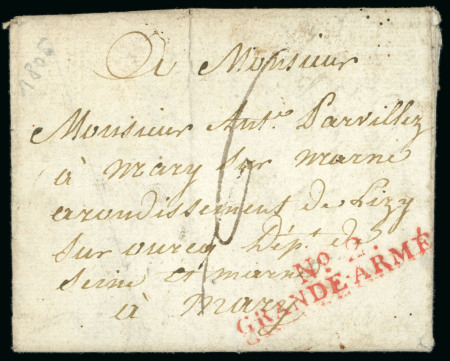 1806
A Monsieur
Monsieur Ant.e Parvillez
à mary sur marne
arondissement de Lizy
sur ourcq Dép.t de
seine et marne
à Mary
No. 2.
GRANDE ARMÉE